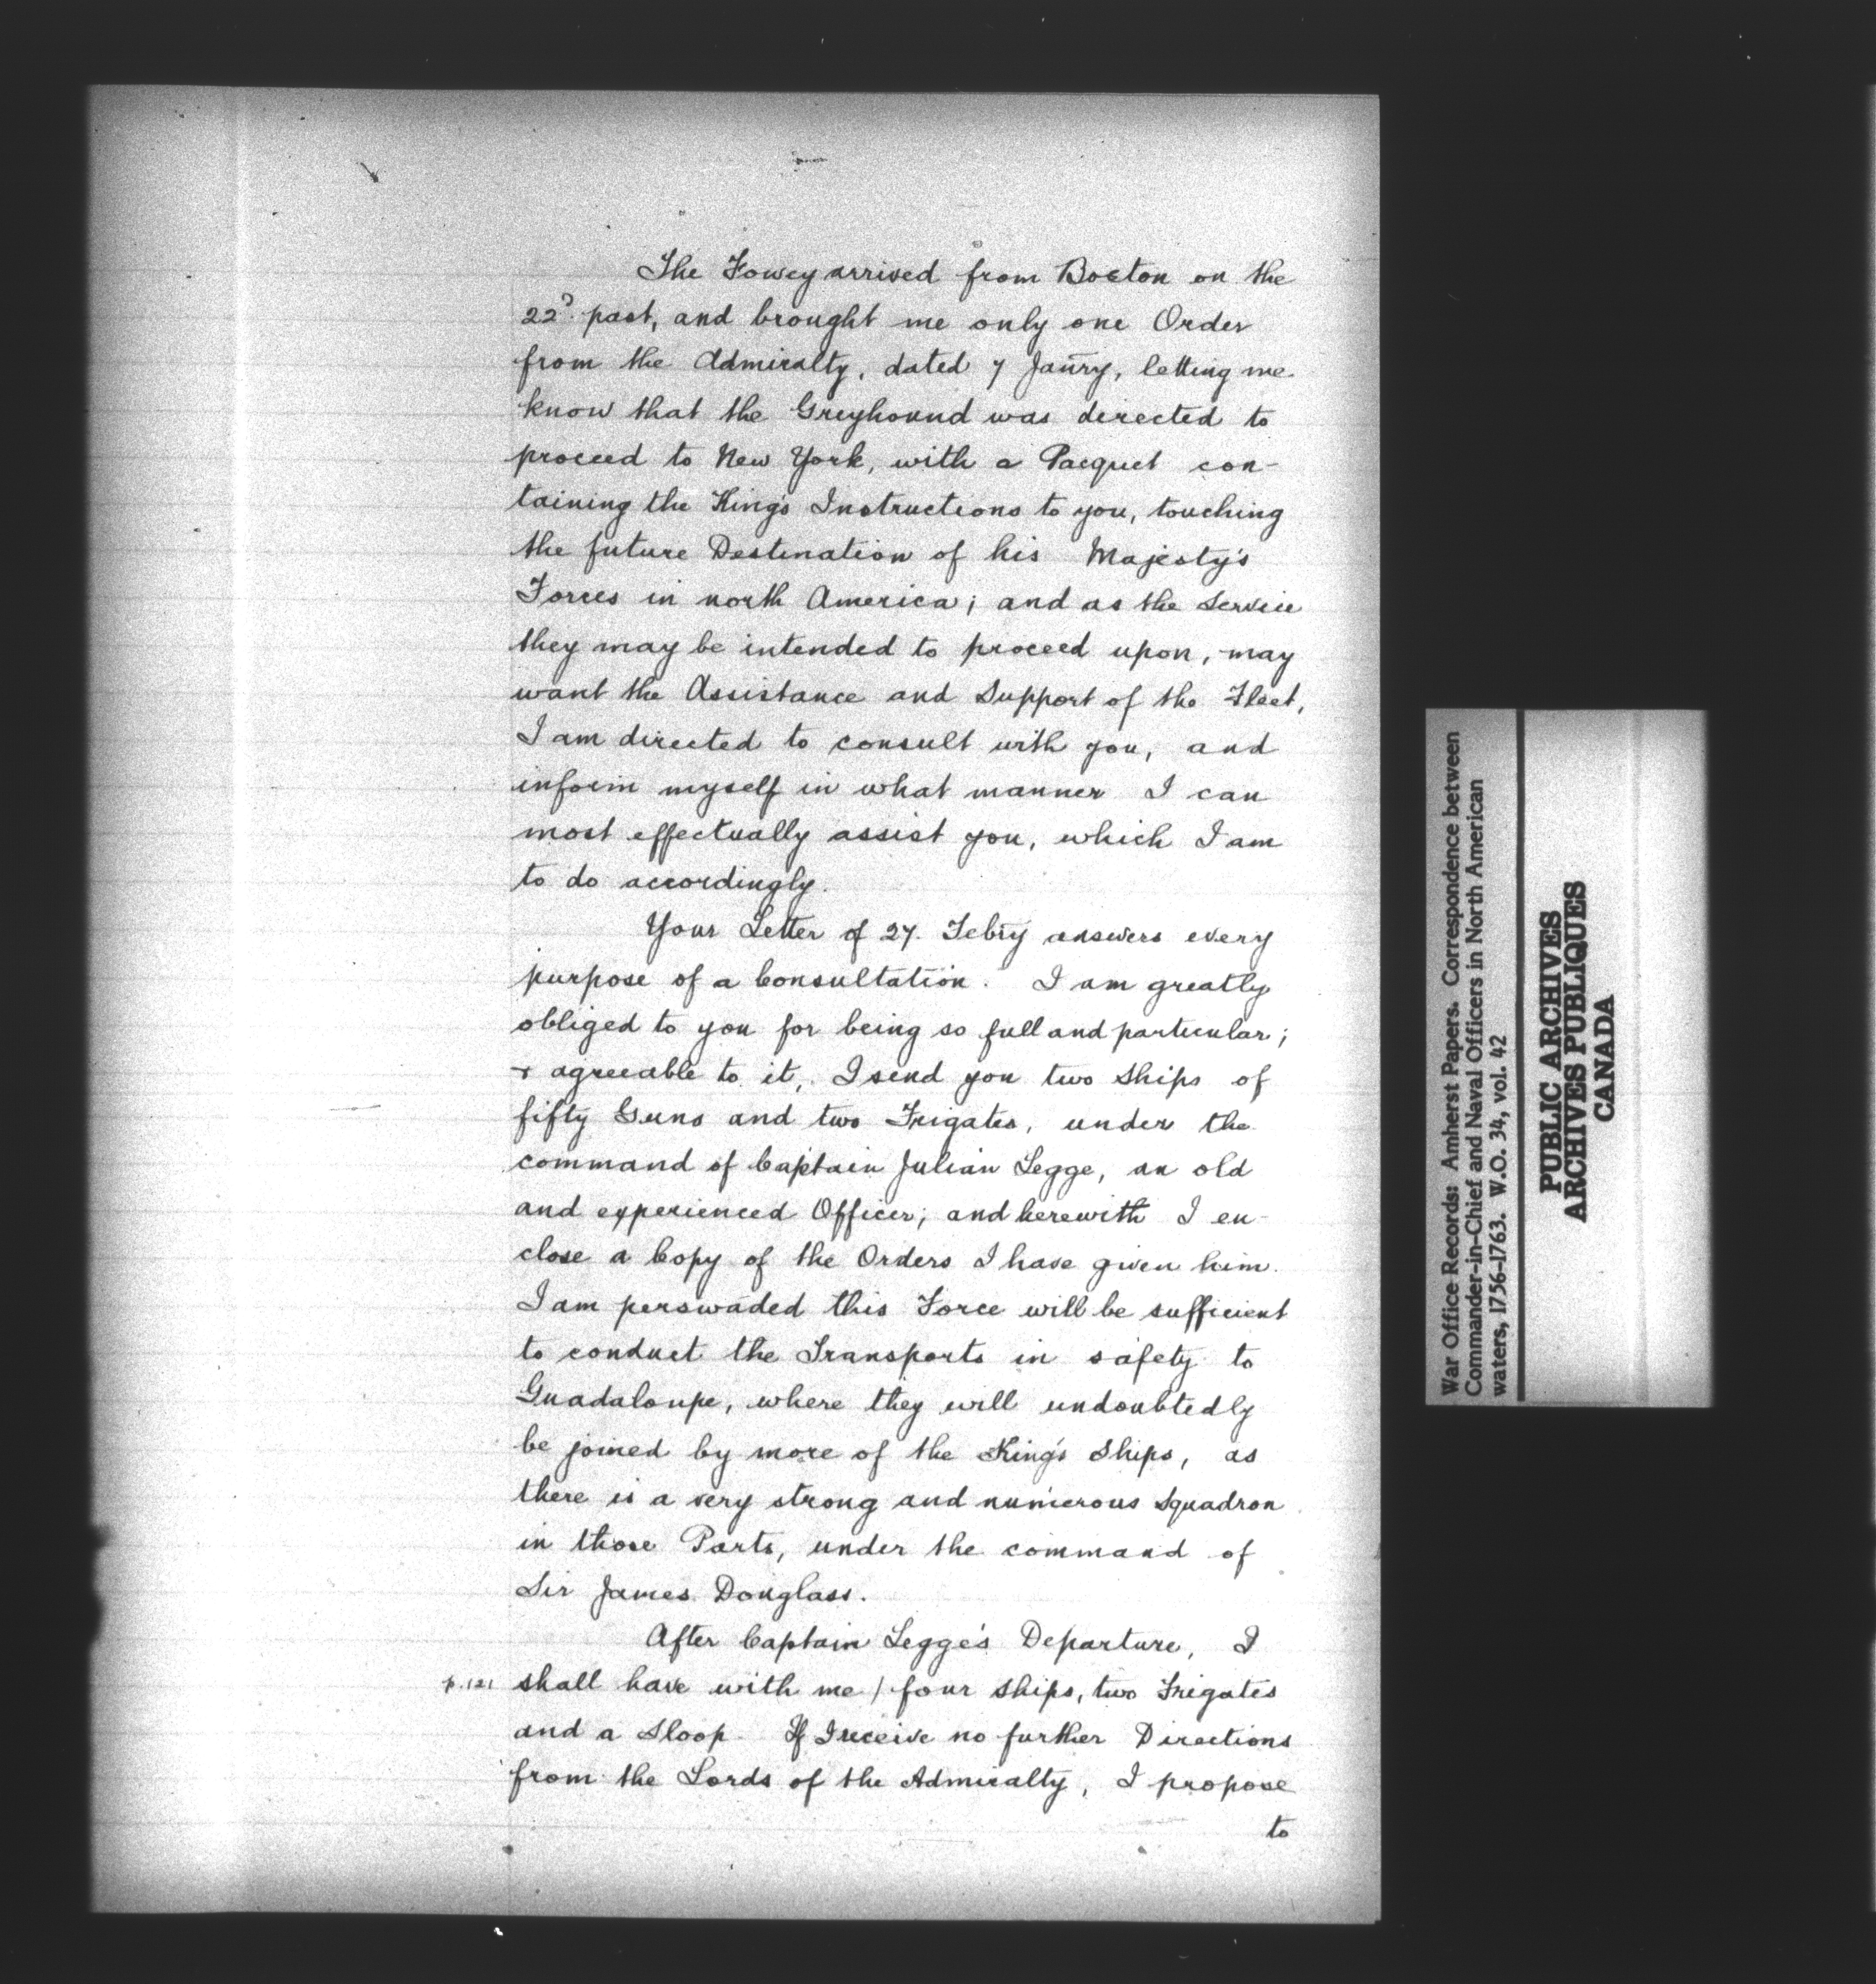 The Fowey arrived from Boston on the
22d. past, and brought me only one Order
from the Admiralty, dated 7 Janry, letting me
know that the Greyhound was directed to
proceed to New York, with a Pacquet con-
taining the King's Instructions to you, touching
the future Destination of his Majesty's
Forces in north America; and as the Service
they may be intended to proceed upon, may
want the Assistance and Support of the Fleet,
I am directed to consult with you, and
inform myself in what manner I can
most effectually assist you, which I am
to do accordingly.
Your Letter of 27. Febry answers every
purpose of a Consultation. I am greatly
obliged to you for being so full and particular;
& agreeable to it, I send you two Ships of
fifty Guns and two Frigates, under the
command of Captain Julian Legge, an old
and experienced Officer; and herewith I en-
close a Copy of the Orders I have given him.
I am perswaded this Force will be sufficient
to conduct the Transports in safety to
Guadaloupe, where they will undoubtedly
be joined by more of the King's Ships, as
there is a very strong and numerous Squadron
in those Parts, under the command of
Sir James Douglass.
After Captain Legge's Departure, I
p.121 shall have with me / four Ships, two Frigates
and a Sloop. If I receive no further Directions
from the Lords of the Admiralty, I propose
to
War Office Records: Amherst Papers. Correspondence between
Commander-in-Chief and Naval Officers in North American
waters, 1756-1763. W.O. 34, vol. 42
PUBLIC ARCHIVES
ARCHIVES PUBLIQUES
CANADA